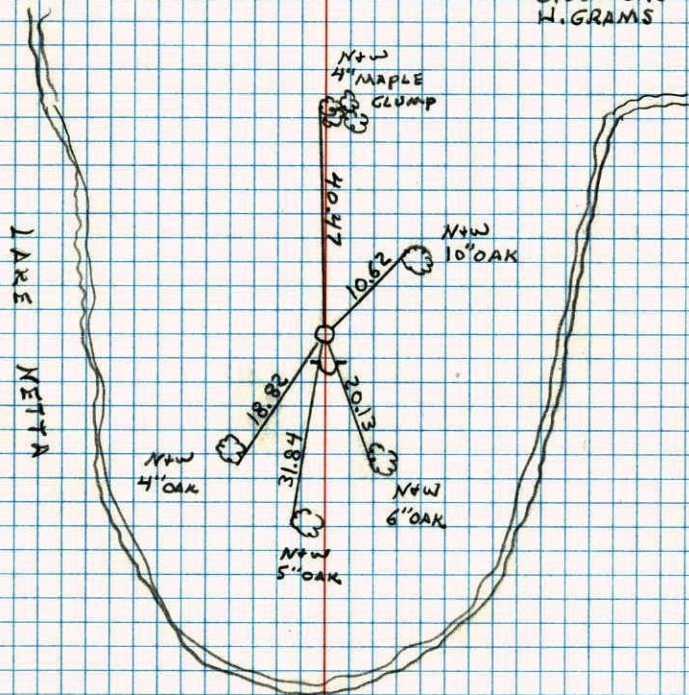 H. GRAMS
N+W
4" MAPLE
CLUMP
40.47
N+W
10" OAK
10.62
LAKE NETTA
18.82
20.13
31.84
N+W
4" OAK
N+W
6" OAK
N+W
5" OAK